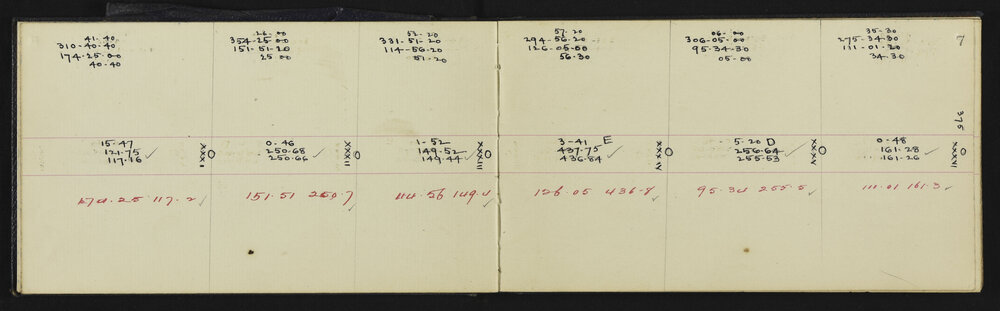 41-40
310-40-40
174-25-00
40-40
26-00
354-25-00
151-51-20
25 00
52-20
331-51-20
114-56-20
51-20
57-20
294-56-20
126-05-00
56-30
06-00
306-05-00
95-34-30
05-00
35-30
275-34-30
111-01-20
34-30
7
376
15-47
121-75
117-16 ✓
XXXI
0-46
250-68
250-66 ✓
XXXII
1-52
149-52
149-44 ✓
XXXIII
3-41 E
437-75
436-84 ✓
XXXIV
5-20 D
256-64
255-53 ✓
XXXV
0-48
161-28 ✓
161-26
XXXVI
174.25 117.2 ✓
151.51 250.7 ✓
114.56 149.4 ✓
126.05 436.8 ✓
95.34 255.5 ✓
111.01 161.3 ✓